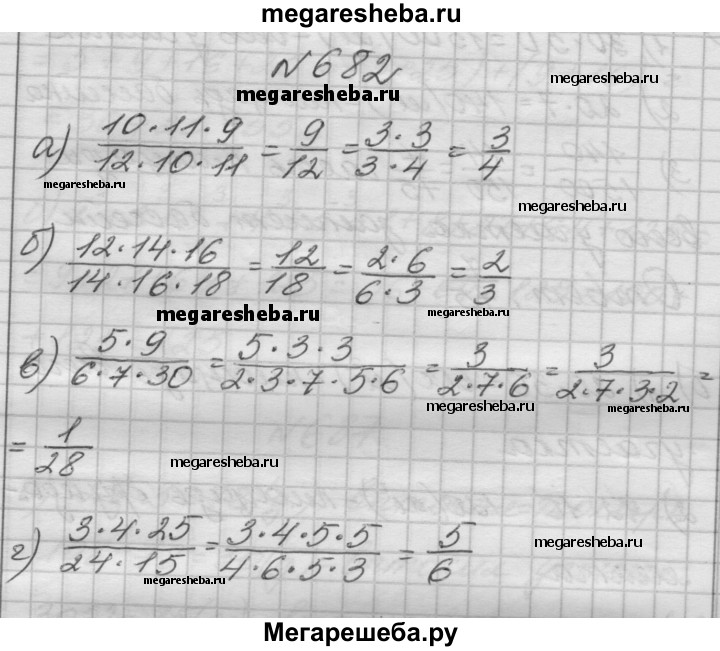 megaresheba.ru
№682
megaresheba.ru
megaresheba.ru
а) 10·11·9/12·10·11 = 9/12 = 3·3/3·4 = 3/4
megaresheba.ru
megaresheba.ru
б) 12·14·16/14·16·18 = 12/18 = 2·6/6·3 = 2/3
megaresheba.ru
megaresheba.ru
в) 5·9/6·7·30 = 5·3·3/2·3·7·5·6 = 3/2·7·6 = 3/2·7·3·2 =
megaresheba.ru
megaresheba.ru
= 1/28
megaresheba.ru
г) 3·4·25/24·15 = 3·4·5·5/4·6·5·3 = 5/6
megaresheba.ru
megaresheba.ru
Мегарешеба.ру